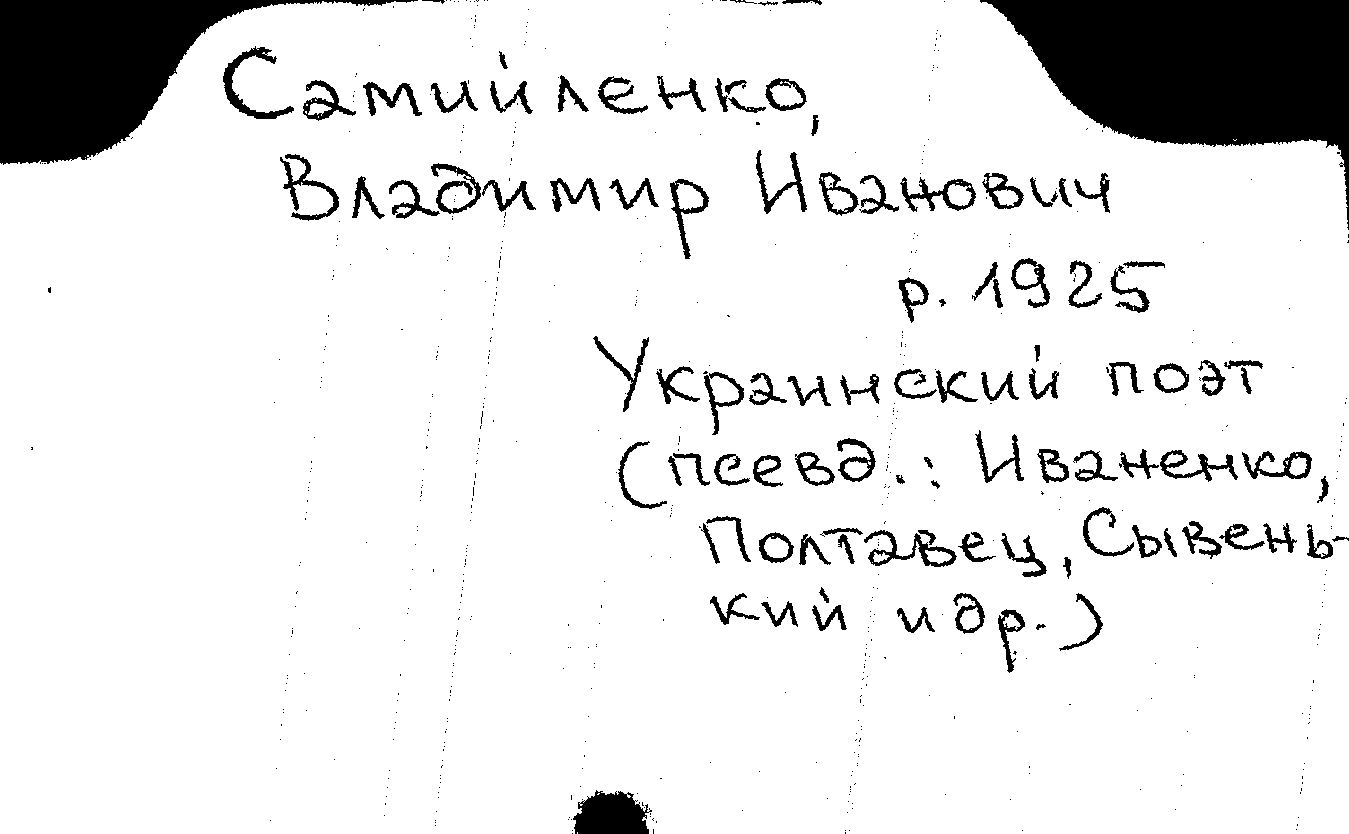 Самийленко,
Владимир Иванович
р. 1925
Украинский поэт
(псевд.: Иваненко,
Полтавец, Сывень-
кий и др.)